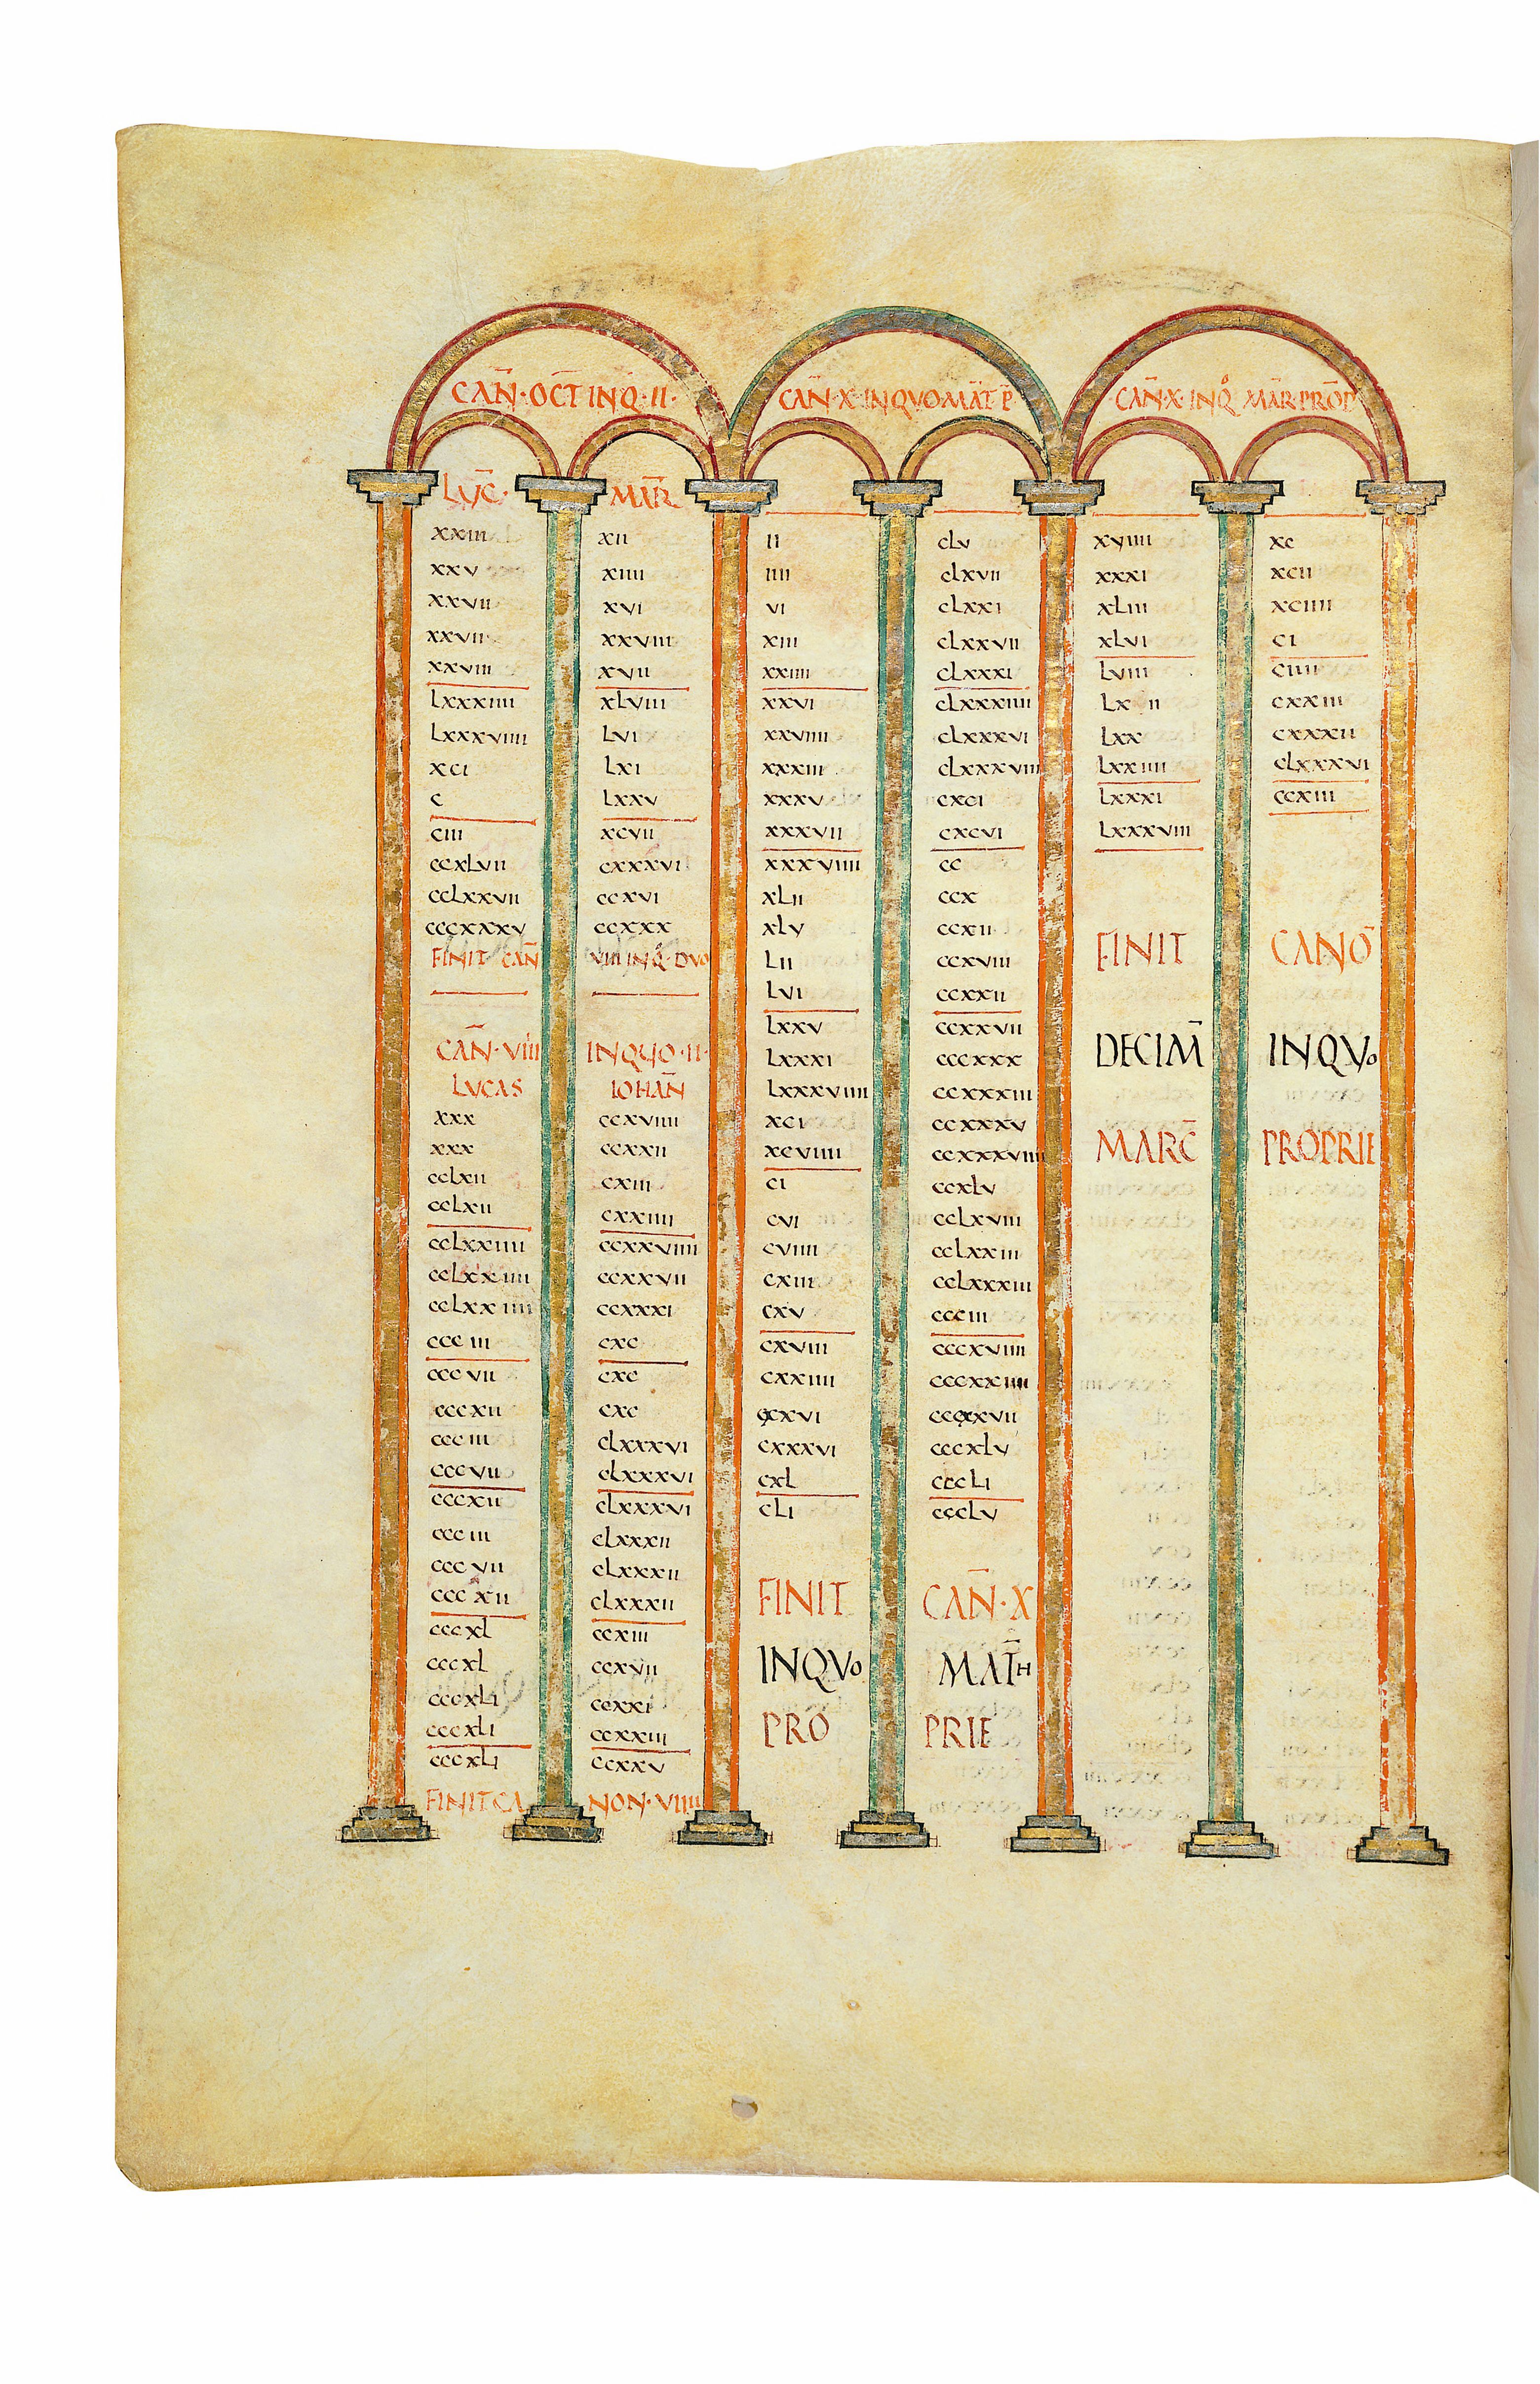 CAN̄·OCT̄ INQ·II·
LUC̄· MAR̄
xxiii xii
xxv xiiii
xxvii xvi
xxvii xxviii
xxviii xvii
Lxxxiiii xLviii
Lxxxviiii Lvi
xci Lxi
c Lxxv
ciii xcvii
ccxLvii cxxxvi
ccLxxvii ccxvi
cccxxxv ccxxx
FINIT CAN̄ VIII INQ̊ DVO
CAN̄·VIIII INQUO·II·
LVCAS IOHAN̄
xxx ccxviiii
xxx ccxxii
ccLxii cxiii
ccLxii cxxiiii
ccLxxiiii ccxxviiii
ccLxxiiii ccxxvii
ccLxxiiii ccxxxi
ccciii cxc
cccvii cxc
cccxii cxc
ccciii cLxxxvi
cccvii cLxxxvi
cccxii cLxxxvi
ccciii cLxxxii
cccvii cLxxxii
cccxii cLxxxii
cccxL ccxiii
cccxL ccxvii
cccxLi ccxxi
cccxLi ccxxiii
cccxLi ccxxv
FINIT CA NON·VIIII
CAN̄·X·INQVO MAT̄ P̄
ii cLv
iiii cLxvii
vi cLxxi
xiii cLxxvii
xxiiii cLxxxi
xxvi cLxxxiiii
xxviiii cLxxxvi
xxxiii cLxxxviii
xxxv cxci
xxxvii cxcvi
xxxviiii cc
xLii ccx
xLv ccxii
Lii ccxviii
Lvi ccxxii
Lxxv ccxxvii
Lxxxi cccxxx
Lxxxviiii ccxxxiii
xci ccxxxv
xcviiii ccxxxviiii
ci ccxLv
cvi ccLxviii
cviiii ccLxxiii
cxiii ccLxxxiii
cxv ccciii
cxviii cccxviiii
cxxiiii cccxxiiii
cxxvi cccxxvii
cxxxvi cccxLv
cxL cccLi
cLi cccLv
FINIT CAN̄·X
INQVO MAT̄H
PRO PRIE
CAN̄·X·INQ̊ MAR̄·PRŌP
xviiii xc
xxxi xcii
xLiii xciiii
xLvi ci
Lviii ciiii
Lx ii cxxiii
Lxx cxxxii
Lxxiiii cLxxxvi
Lxxxi ccxiii
Lxxxviii
FINIT CANŌ
DECIM̄ INQVO
MARC̄ PROPRIE